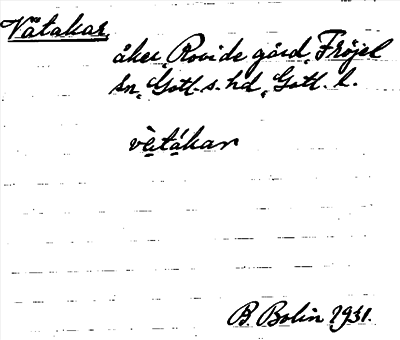 Vätakar
åker, Rovide gård, Fröjel
sn, Gotl. s. hd, Gotl. l.
vàtákar
B. Bolin 1931.